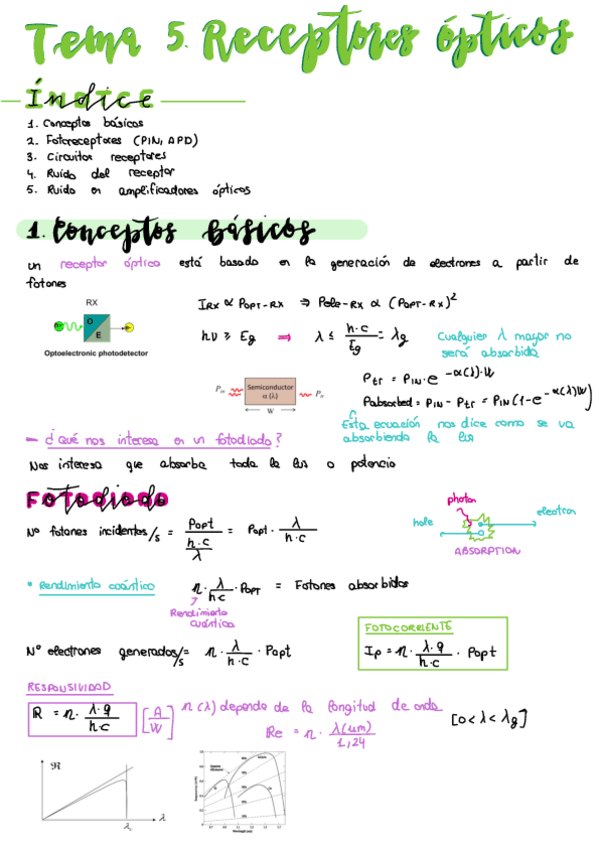 Tema 5. Receptores ópticos
Índice
1. Conceptos básicos
2. Fotorreceptores (PIN, APD)
3. Circuitos receptores
4. Ruido del receptor
5. Ruido en amplificadores ópticos
1. Conceptos básicos
un receptor óptico está basado en la generación de electrones a partir de
fotones
RX
O
E
Optoelectronic photodetector
IRX ∝ POPT-RX ⇒ Pele-RX ∝ (POPT-RX)²
hν ≥ Eg ⇒ λ ≤ h·c/Eg = λg
Cualquier λ mayor no
será absorbida
Pin
Semiconductor
α (λ)
Ptr
W
Ptr = PIN·e^-α(λ)·W
Pabsorbed = PIN - Ptr = PIN(1-e^-α(λ)W)
Esta ecuación nos dice como se va
absorbiendo la luz
- ¿Qué nos interesa en un fotodiodo?
Nos interesa que absorba toda la luz o potencia
FOTODIODO
Nº fotones incidentes/s = Popt/(h·c/λ) = Popt · λ/h·c
photon
hole
electron
ABSORPTION
* Rendimiento cuántico
η · λ/h·c · POPT = Fotones absorbidos
Rendimiento
cuántico
Nº electrones generados/s = η · λ/h·c · Popt
FOTOCORRIENTE
Ip = η · λ·q/h·c · Popt
RESPONSIVIDAD
R = η · λ·q/h·c [A/W]
η(λ) depende de la longitud de onda
[0<λ<λg]
Re = η · λ(um)/1,24
ℜ
λc
λ